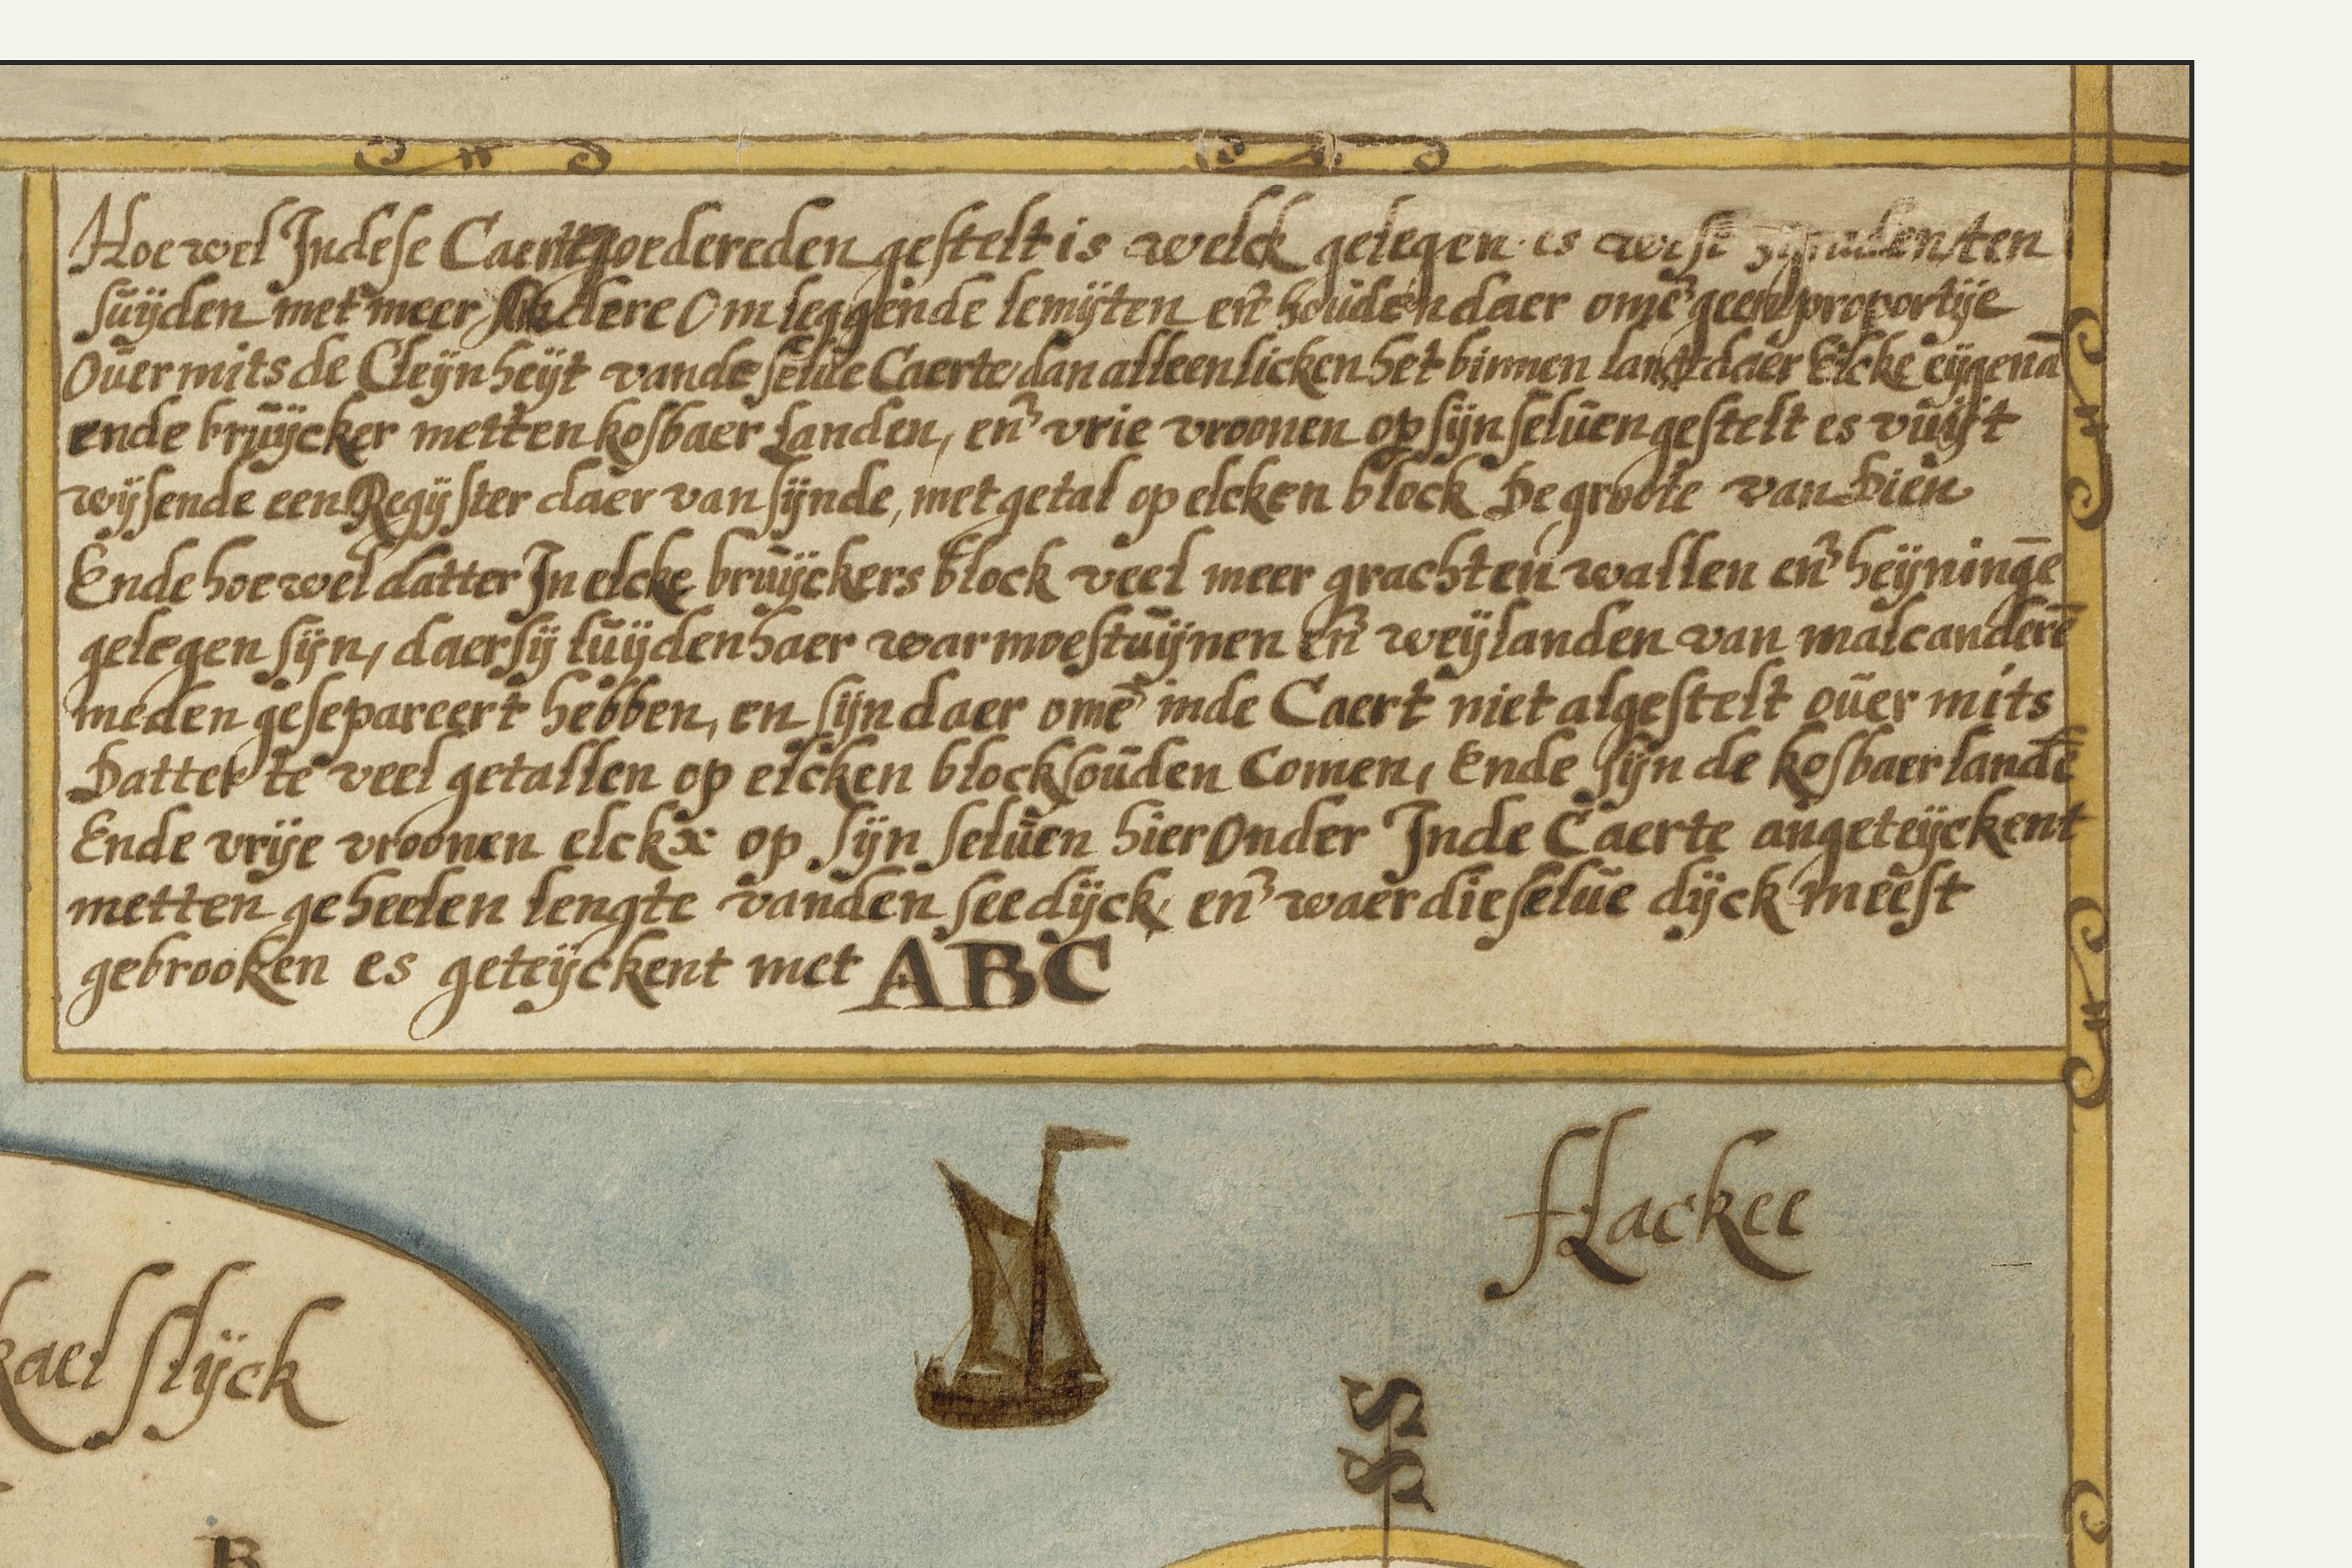 Hoe wel Indese Caerte goedereden gestelt is welck gelegen es west ten
suÿden met meer Andere Omleggende lemÿten eñ houden daer omē geen proportÿe
Oūermits de Cleÿnheÿt vande selūe Caerte dan alleenlicken het binnen lant daer Elcke eÿgenā
ende brūÿcker metten kosbaer Landen, eñ vrie vroonen op sÿn selūen gestelt es vūÿt
wÿsende een Regÿster daer van sÿnde, met getal op elcken block De groote van Dien
Ende hoe wel datter In elcke brūÿckers block veel meer grachten wallen eñ heÿningē
gelegen sÿn, daer sÿ lūÿden haer warmoestūÿnen eñ weÿlanden van malcanderē
meden gesepareert hebben, en sÿn daer omē inde Caert niet al gestelt oūer mits
Datter te veel getallen op elcken block soūden Comen, Ende sÿn de kosbaer landē
Ende vrÿe vroonen elckx op sÿn selūen hier Onder Inde Caerte angeteÿckent
metten geheelen lengte vanden seedÿck, eñ waer die selūe dÿck meest
gebrooken es geteÿckent met ABC
flackee
kael slÿck
SS
B